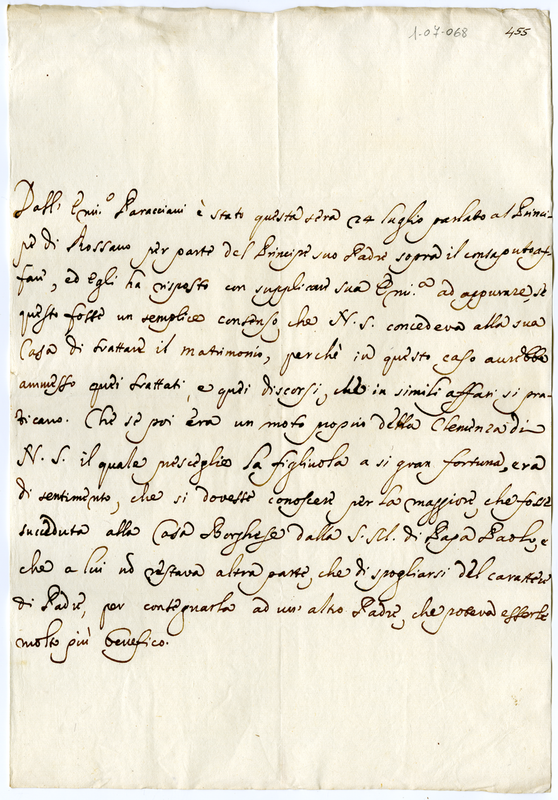 1-07-068
455
Dall' Emi.º Paracciani è stato questa sera 24 luglio parlato al Princi-
pe di Rossano per parte del Principe suo Padre sopra il consaputo af-
fare, ed Egli ha risposto con supplicare sua Emi.ª ad appurare, se
questo fosse un semplice consenso, che N. S. concedeva alla sua
Casa di trattare il matrimonio, perchè in questo caso avrebbe
ammesso quei trattati, e quei discorsi, che in simili affari si pra-
ticano. Che se poi era un moto proprio della Clemenza di
N. S. il quale presceglie la figliuola a si gran fortuna, era
di sentimento, che si dovesse conoscere per la maggiore, che fosse
succeduta alla Casa Borghese dalla S. M. di Papa Paolo, e
che a lui nõ restava altra parte, che di spogliarsi del carattere
di Padre, per consegnarla ad un' altro Padre, che poteva esserle
molto più benefico.